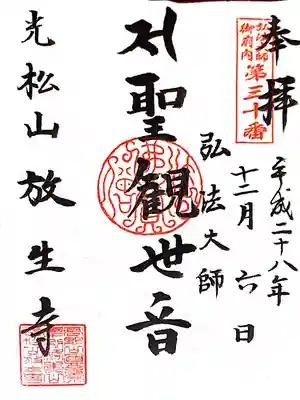 奉拝
弘法大師
御府内
第三十番
平成二十八年
十二月六日
弘法大師
聖観世音
光松山放生寺